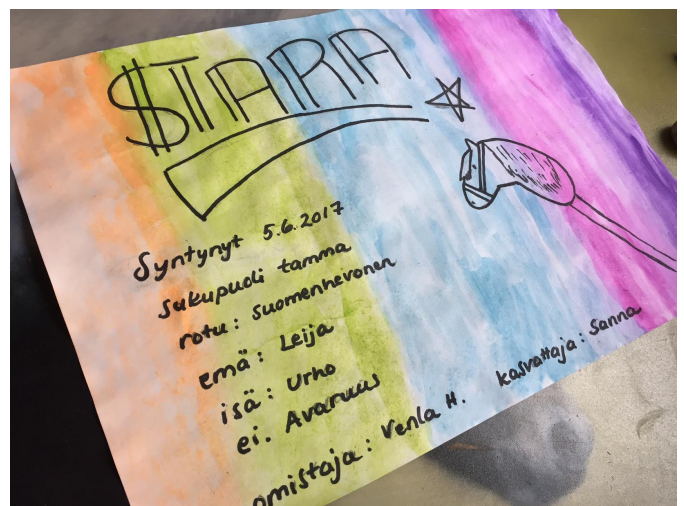 STARA
Syntynyt 5.6.2017
sukupuoli tamma
rotu: suomenhevonen
emä: Leija
isä: Urho
ei. Avaruus
omistaja: Venla H.
kasvattaja: Sanna